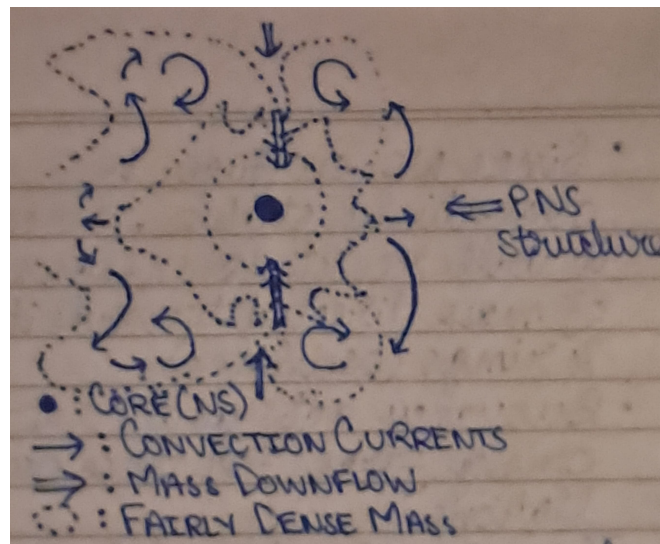 PNS
● : CORE (NS)
→ : CONVECTION CURRENTS
⇒ : MASS DOWNFLOW
: FAIRLY DENSE MASS